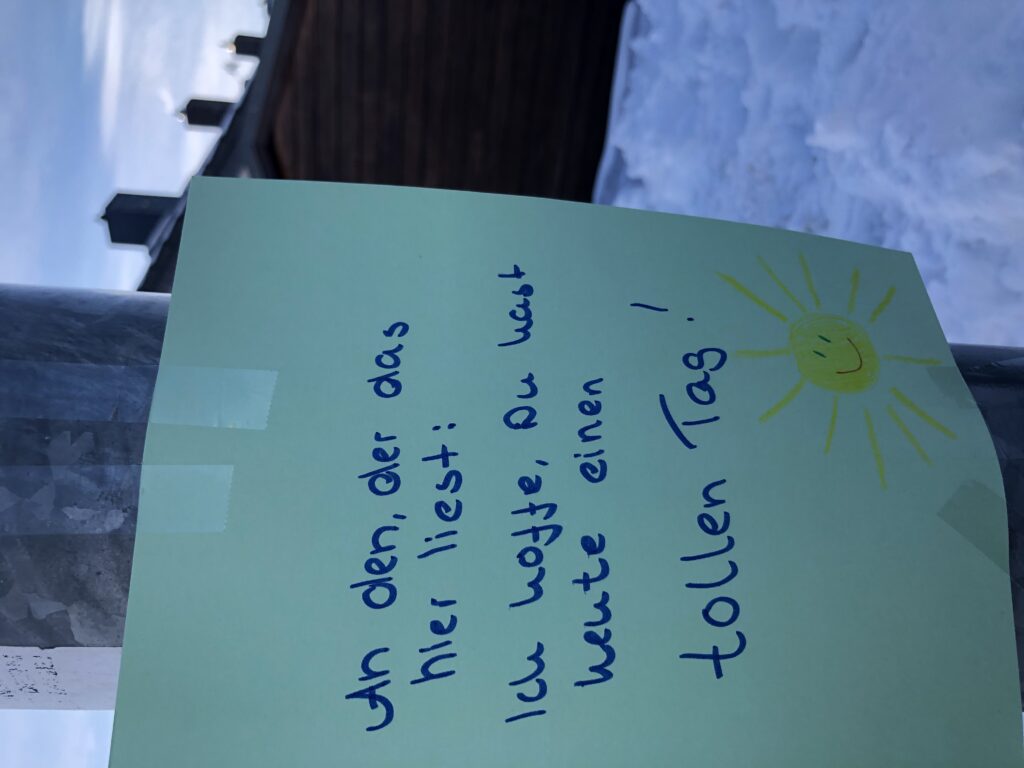 An den, der das
hier liest:
Ich hoffe, Du hast
heute einen
tollen Tag!